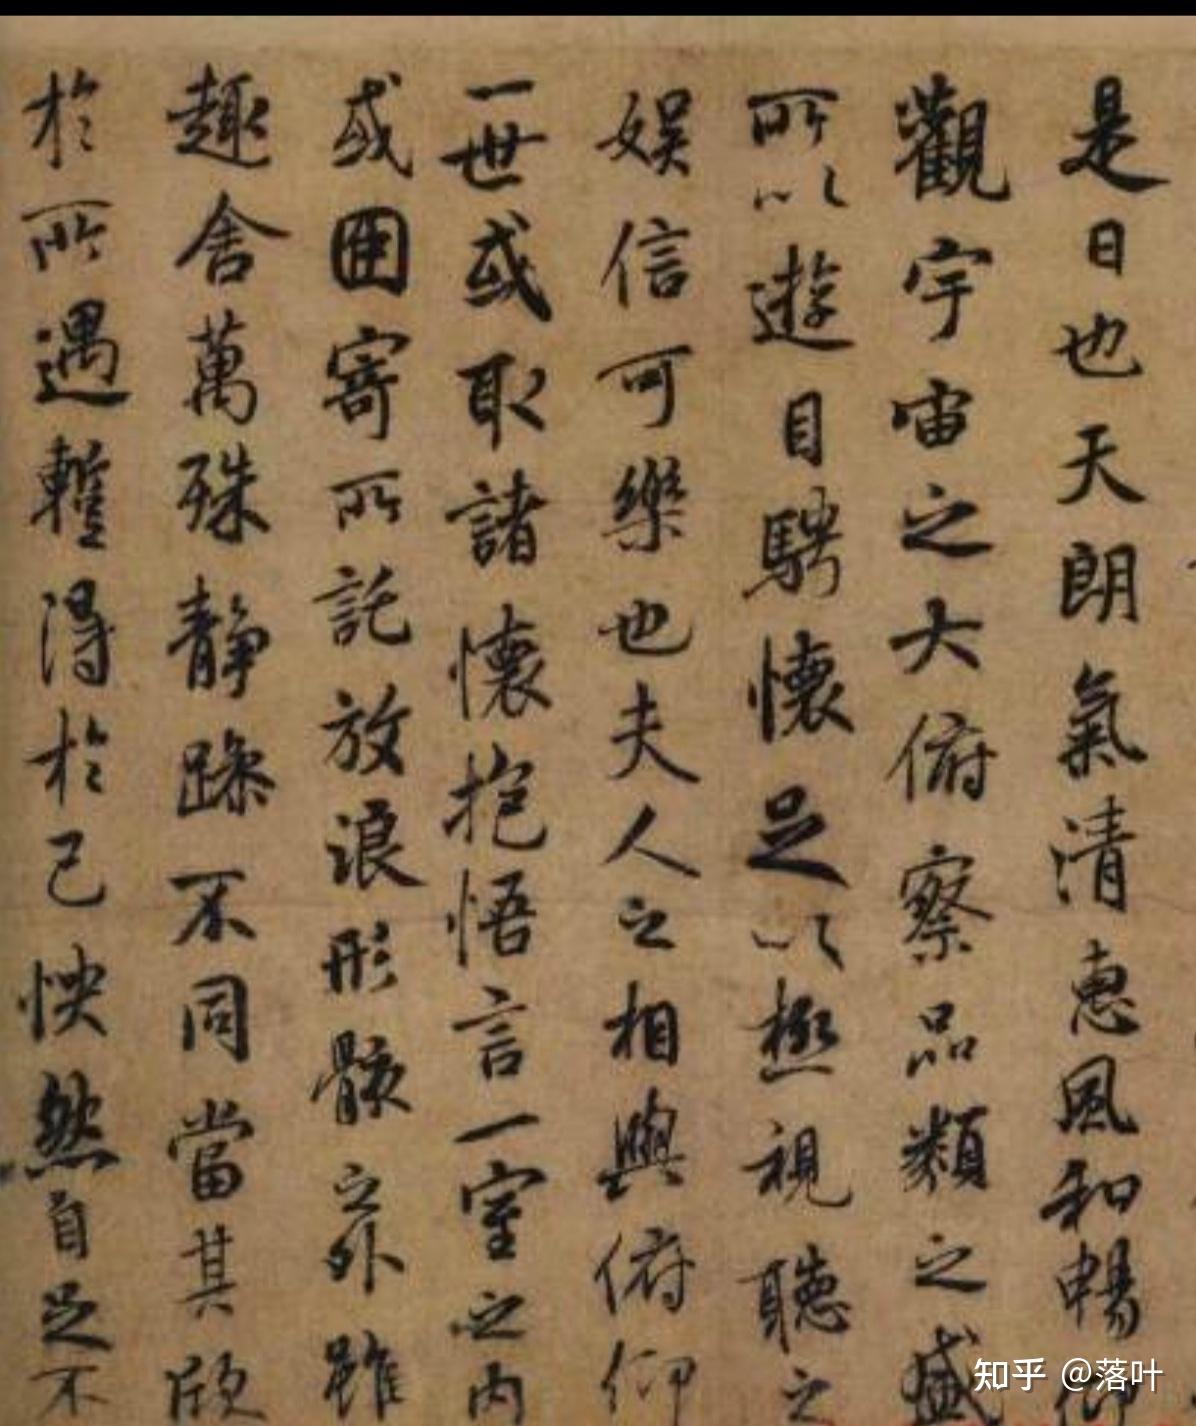 是日也天朗氣清惠風和暢仰
觀宇宙之大俯察品類之盛
所以遊目騁懷足以極視聽之
娛信可樂也夫人之相與俯仰
一世或取諸懷抱悟言一室之內
或因寄所託放浪形骸之外雖
趣舍萬殊靜躁不同當其欣
於所遇暫得於己怏然自足不
知乎 @落叶